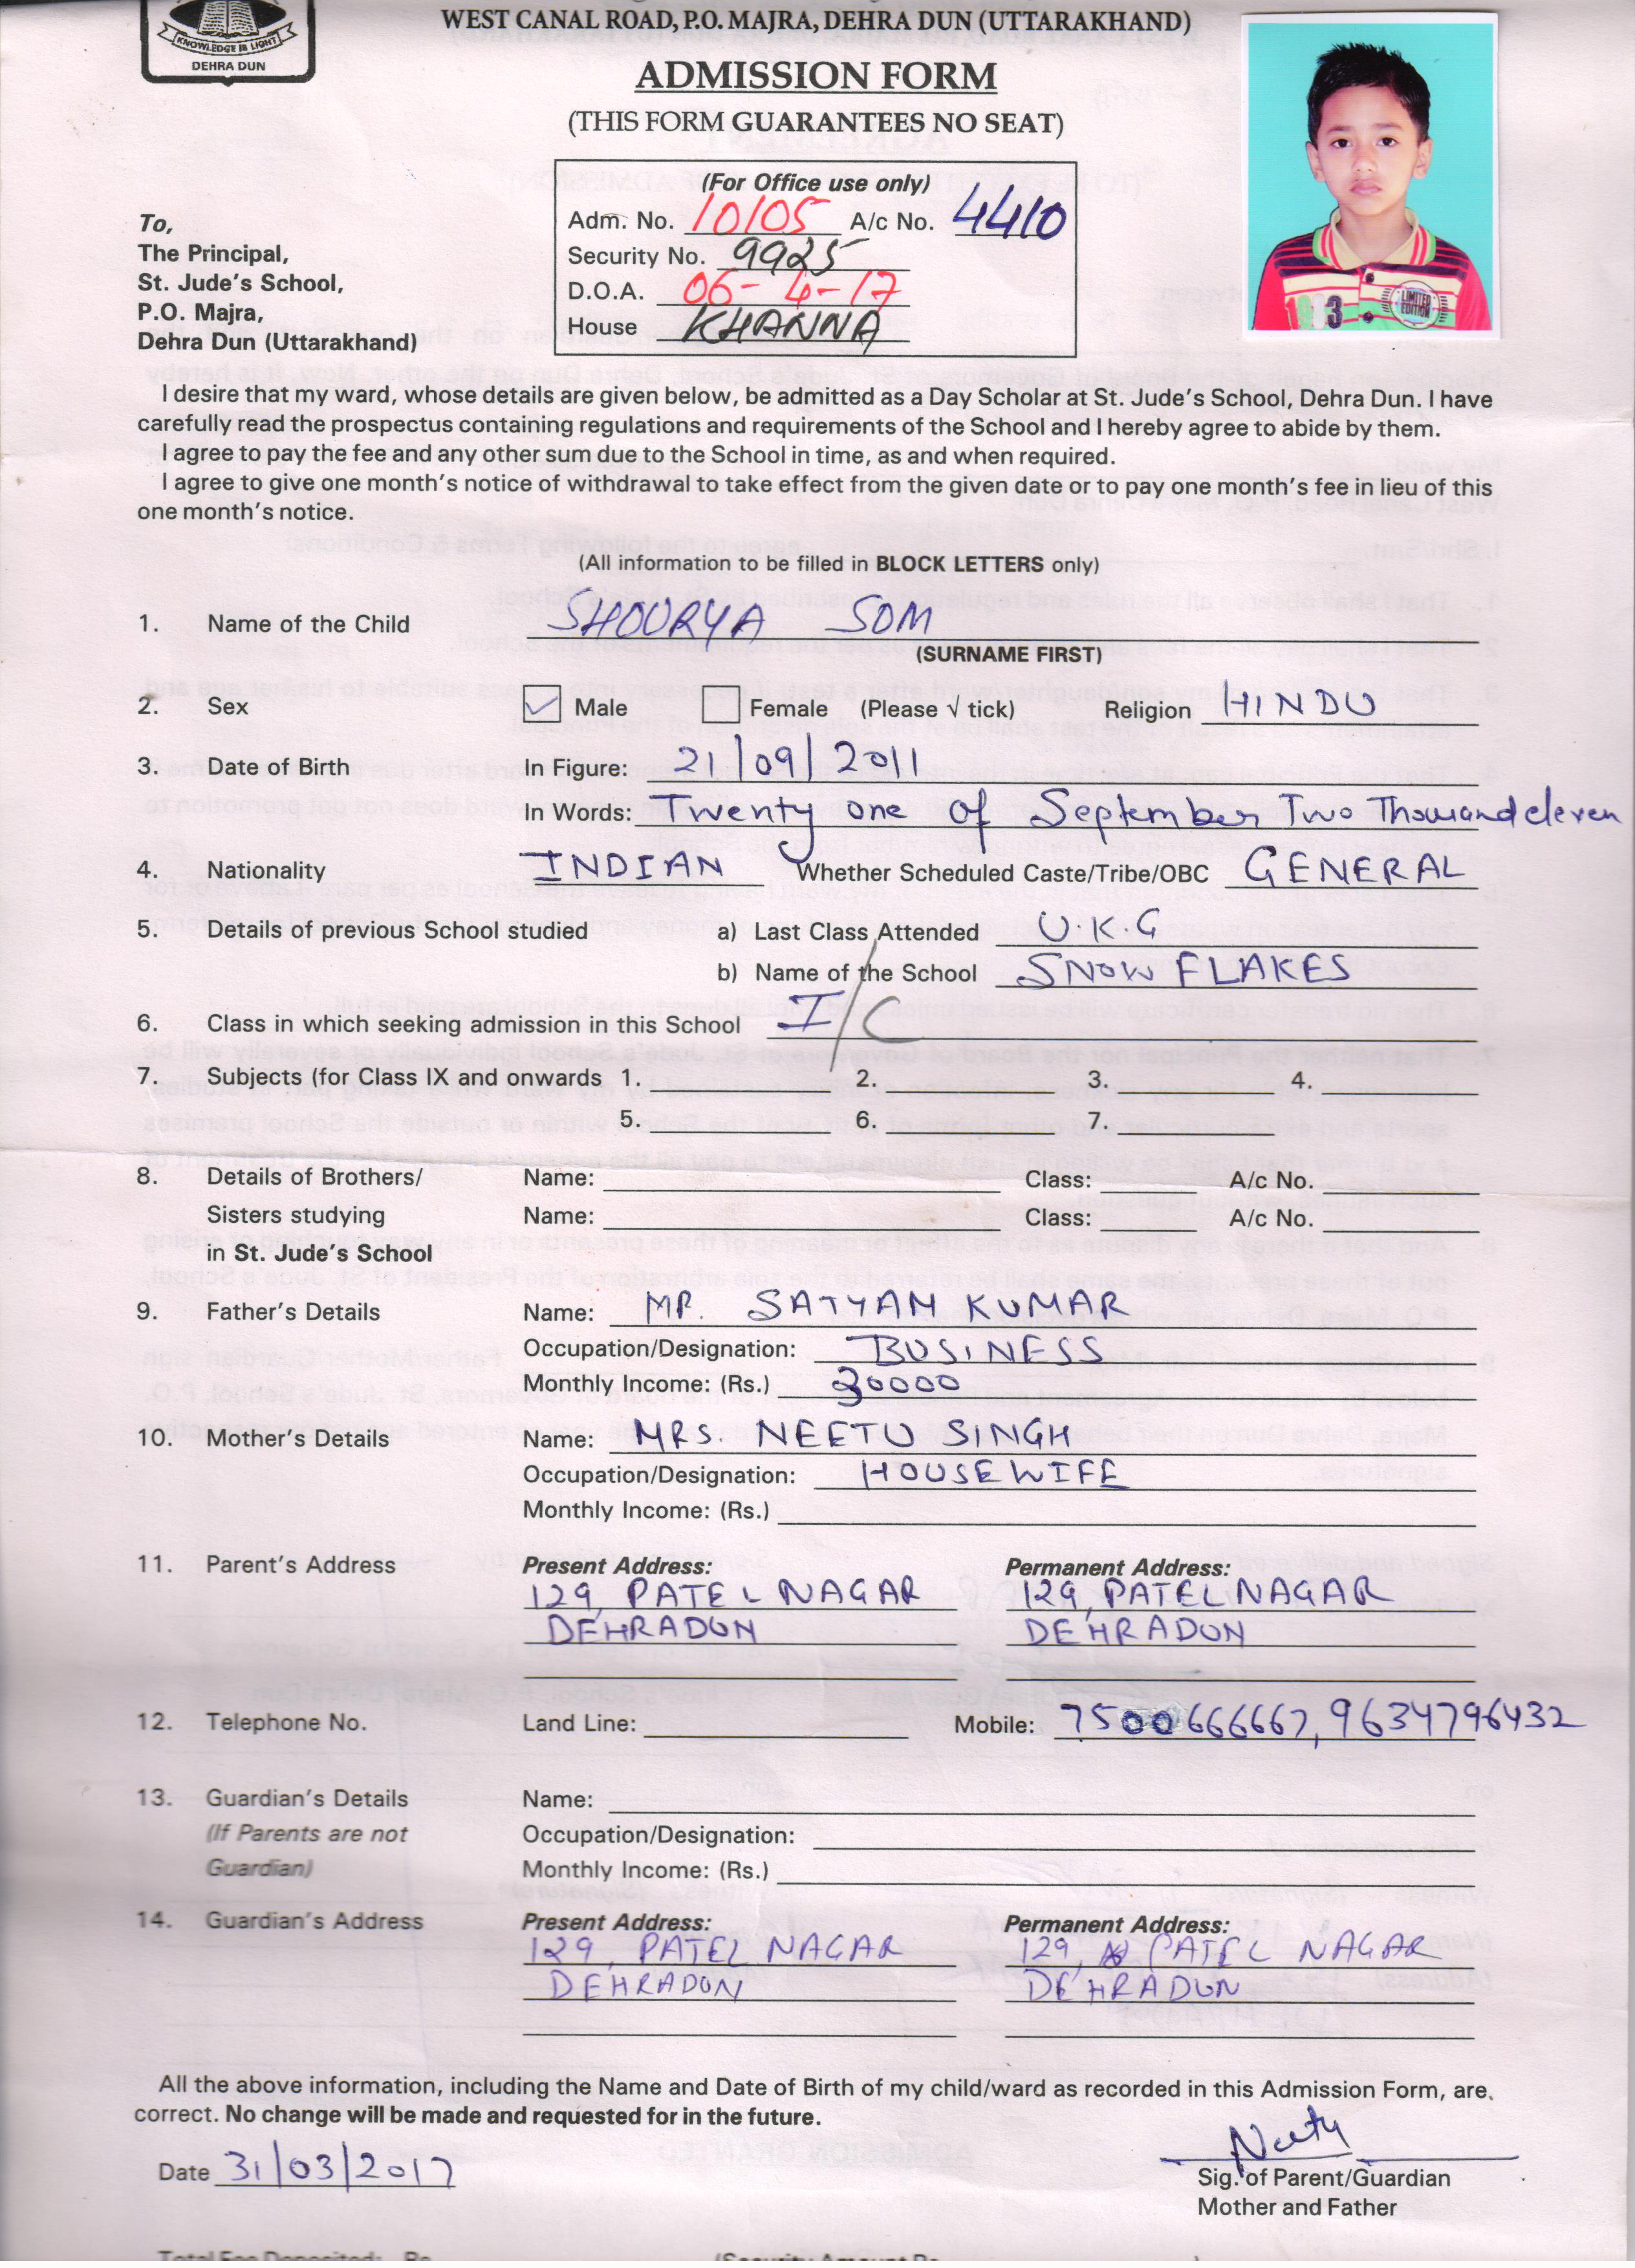 KNOWLEDGE IS LIGHT
DEHRA DUN
WEST CANAL ROAD, P.O. MAJRA, DEHRA DUN (UTTARAKHAND)
ADMISSION FORM
(THIS FORM GUARANTEES NO SEAT)
(For Office use only)
Adm. No. 10105 A/c No. 4410
Security No. 9925
D.O.A. 06-4-17
House KHANNA
To,
The Principal,
St. Jude's School,
P.O. Majra,
Dehra Dun (Uttarakhand)
LIMITED EDITION
I desire that my ward, whose details are given below, be admitted as a Day Scholar at St. Jude's School, Dehra Dun. I have
carefully read the prospectus containing regulations and requirements of the School and I hereby agree to abide by them.
I agree to pay the fee and any other sum due to the School in time, as and when required.
I agree to give one month's notice of withdrawal to take effect from the given date or to pay one month's fee in lieu of this
one month's notice.
(All information to be filled in BLOCK LETTERS only)
1. Name of the Child SHOURYA SOM
(SURNAME FIRST)
2. Sex Male Female (Please √ tick) Religion HINDU
3. Date of Birth In Figure: 21/09/2011
In Words: Twenty one of September Two Thousand eleven
4. Nationality INDIAN Whether Scheduled Caste/Tribe/OBC GENERAL
5. Details of previous School studied a) Last Class Attended U.K.G
b) Name of the School SNOW FLAKES
6. Class in which seeking admission in this School I/C
7. Subjects (for Class IX and onwards 1. 2. 3. 4.
5. 6. 7.
8. Details of Brothers/ Name: Class: A/c No.
Sisters studying Name: Class: A/c No.
in St. Jude's School
9. Father's Details Name: MR. SATYAM KUMAR
Occupation/Designation: BUSINESS
Monthly Income: (Rs.) 30000
10. Mother's Details Name: MRS. NEETU SINGH
Occupation/Designation: HOUSEWIFE
Monthly Income: (Rs.)
11. Parent's Address Present Address: Permanent Address:
129, PATEL NAGAR 129, PATEL NAGAR
DEHRADUN DEHRADUN
12. Telephone No. Land Line: Mobile: 7500666667, 9634796432
13. Guardian's Details Name:
(If Parents are not Occupation/Designation:
Guardian) Monthly Income: (Rs.)
14. Guardian's Address Present Address: Permanent Address:
129, PATEL NAGAR 129, PATEL NAGAR
DEHRADUN DEHRADUN
All the above information, including the Name and Date of Birth of my child/ward as recorded in this Admission Form, are
correct. No change will be made and requested for in the future.
Neetu
Date 31/03/2017
Sig. of Parent/Guardian
Mother and Father